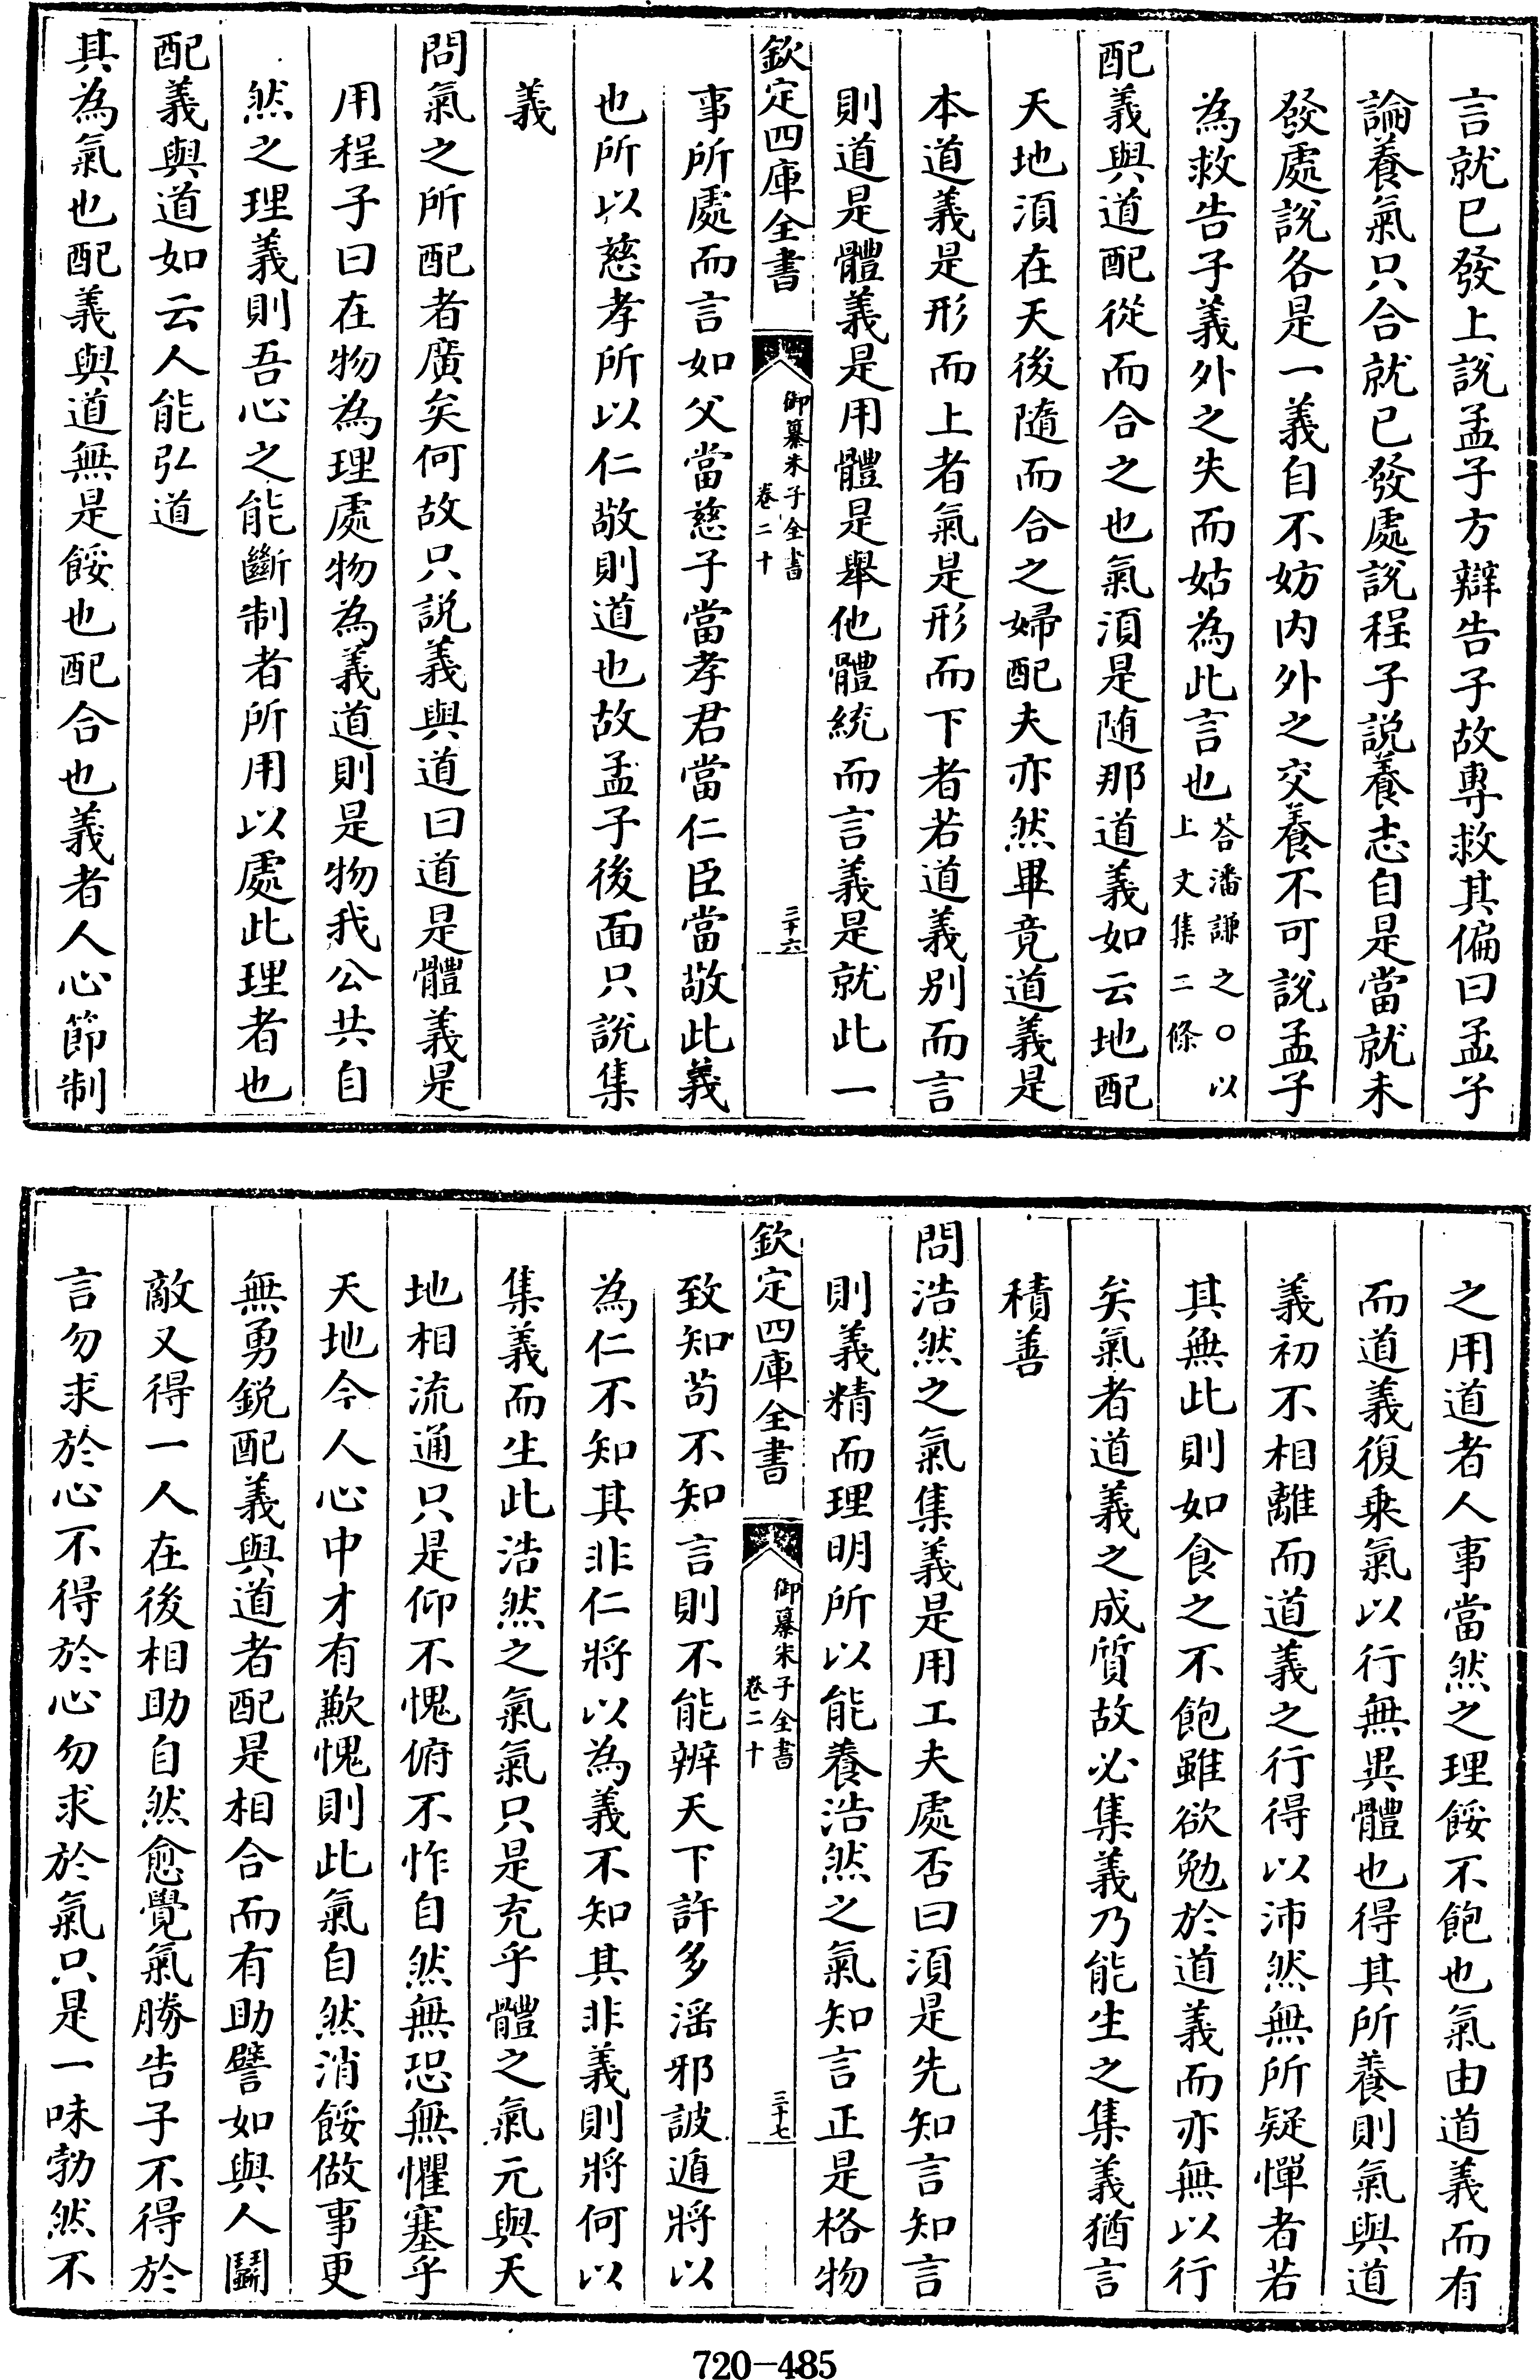 言就已發上說孟子方辯告子故專救其偏曰孟子
論養氣只合就已發處說程子說養志自是當就未
發處說各是一義自不妨内外之交養不可說孟子
為救告子義外之失而姑為此言也答潘謙之〇以上文集二條
配義與道配從而合之也氣須是隨那道義如云地配
天地須在天後隨而合之婦配夫亦然畢竟道義是
本道義是形而上者氣是形而下者若道義别而言
則道是體義是用體是舉他體統而言義是就此一
欽定四庫全書
御纂朱子全書
卷二十
三十六
事所處而言如父當慈子當孝君當仁臣當敬此義
也所以慈孝所以仁敬則道也故孟子後面只說集
義
問氣之所配者廣矣何故只說義與道曰道是體義是
用程子曰在物為理處物為義道則是物我公共自
然之理義則吾心之能斷制者所用以處此理者也
配義與道如云人能弘道
其為氣也配義與道無是餒也配合也義者人心節制
之用道者人事當然之理餒不飽也氣由道義而有
而道義復乘氣以行無異體也得其所養則氣與道
義初不相離而道義之行得以沛然無所疑憚者若
其無此則如食之不飽雖欲勉於道義而亦無以行
矣氣者道義之成質故必集義乃能生之集義猶言
積善
問浩然之氣集義是用工夫處否曰須是先知言知言
則義精而理明所以能養浩然之氣知言正是格物
欽定四庫全書
御纂朱子全書
卷二十
三十七
致知苟不知言則不能辨天下許多淫邪詖遁將以
為仁不知其非仁將以為義不知其非義則將何以
集義而生此浩然之氣氣只是充乎體之氣元與天
地相流通只是仰不愧俯不怍自然無恐無懼塞乎
天地今人心中才有歉愧則此氣自然消餒做事更
無勇銳配義與道者配是相合而有助譬如與人鬭
敵又得一人在後相助自然愈覺氣勝告子不得於
言勿求於心不得於心勿求於氣只是一味勃然不
720-485